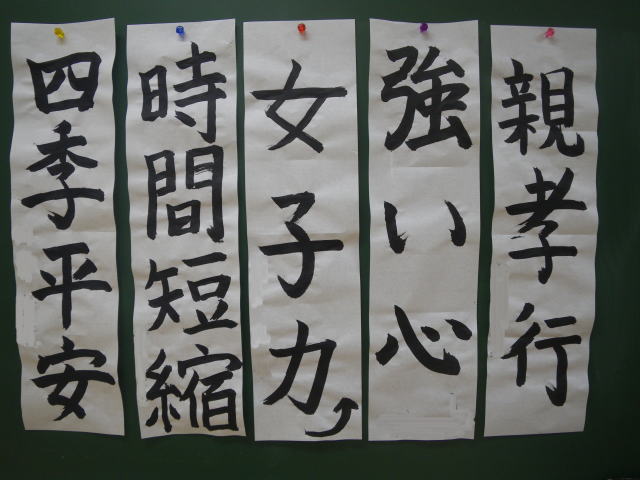 親孝行
強い心
女子力⤴
時間短縮
四季平安